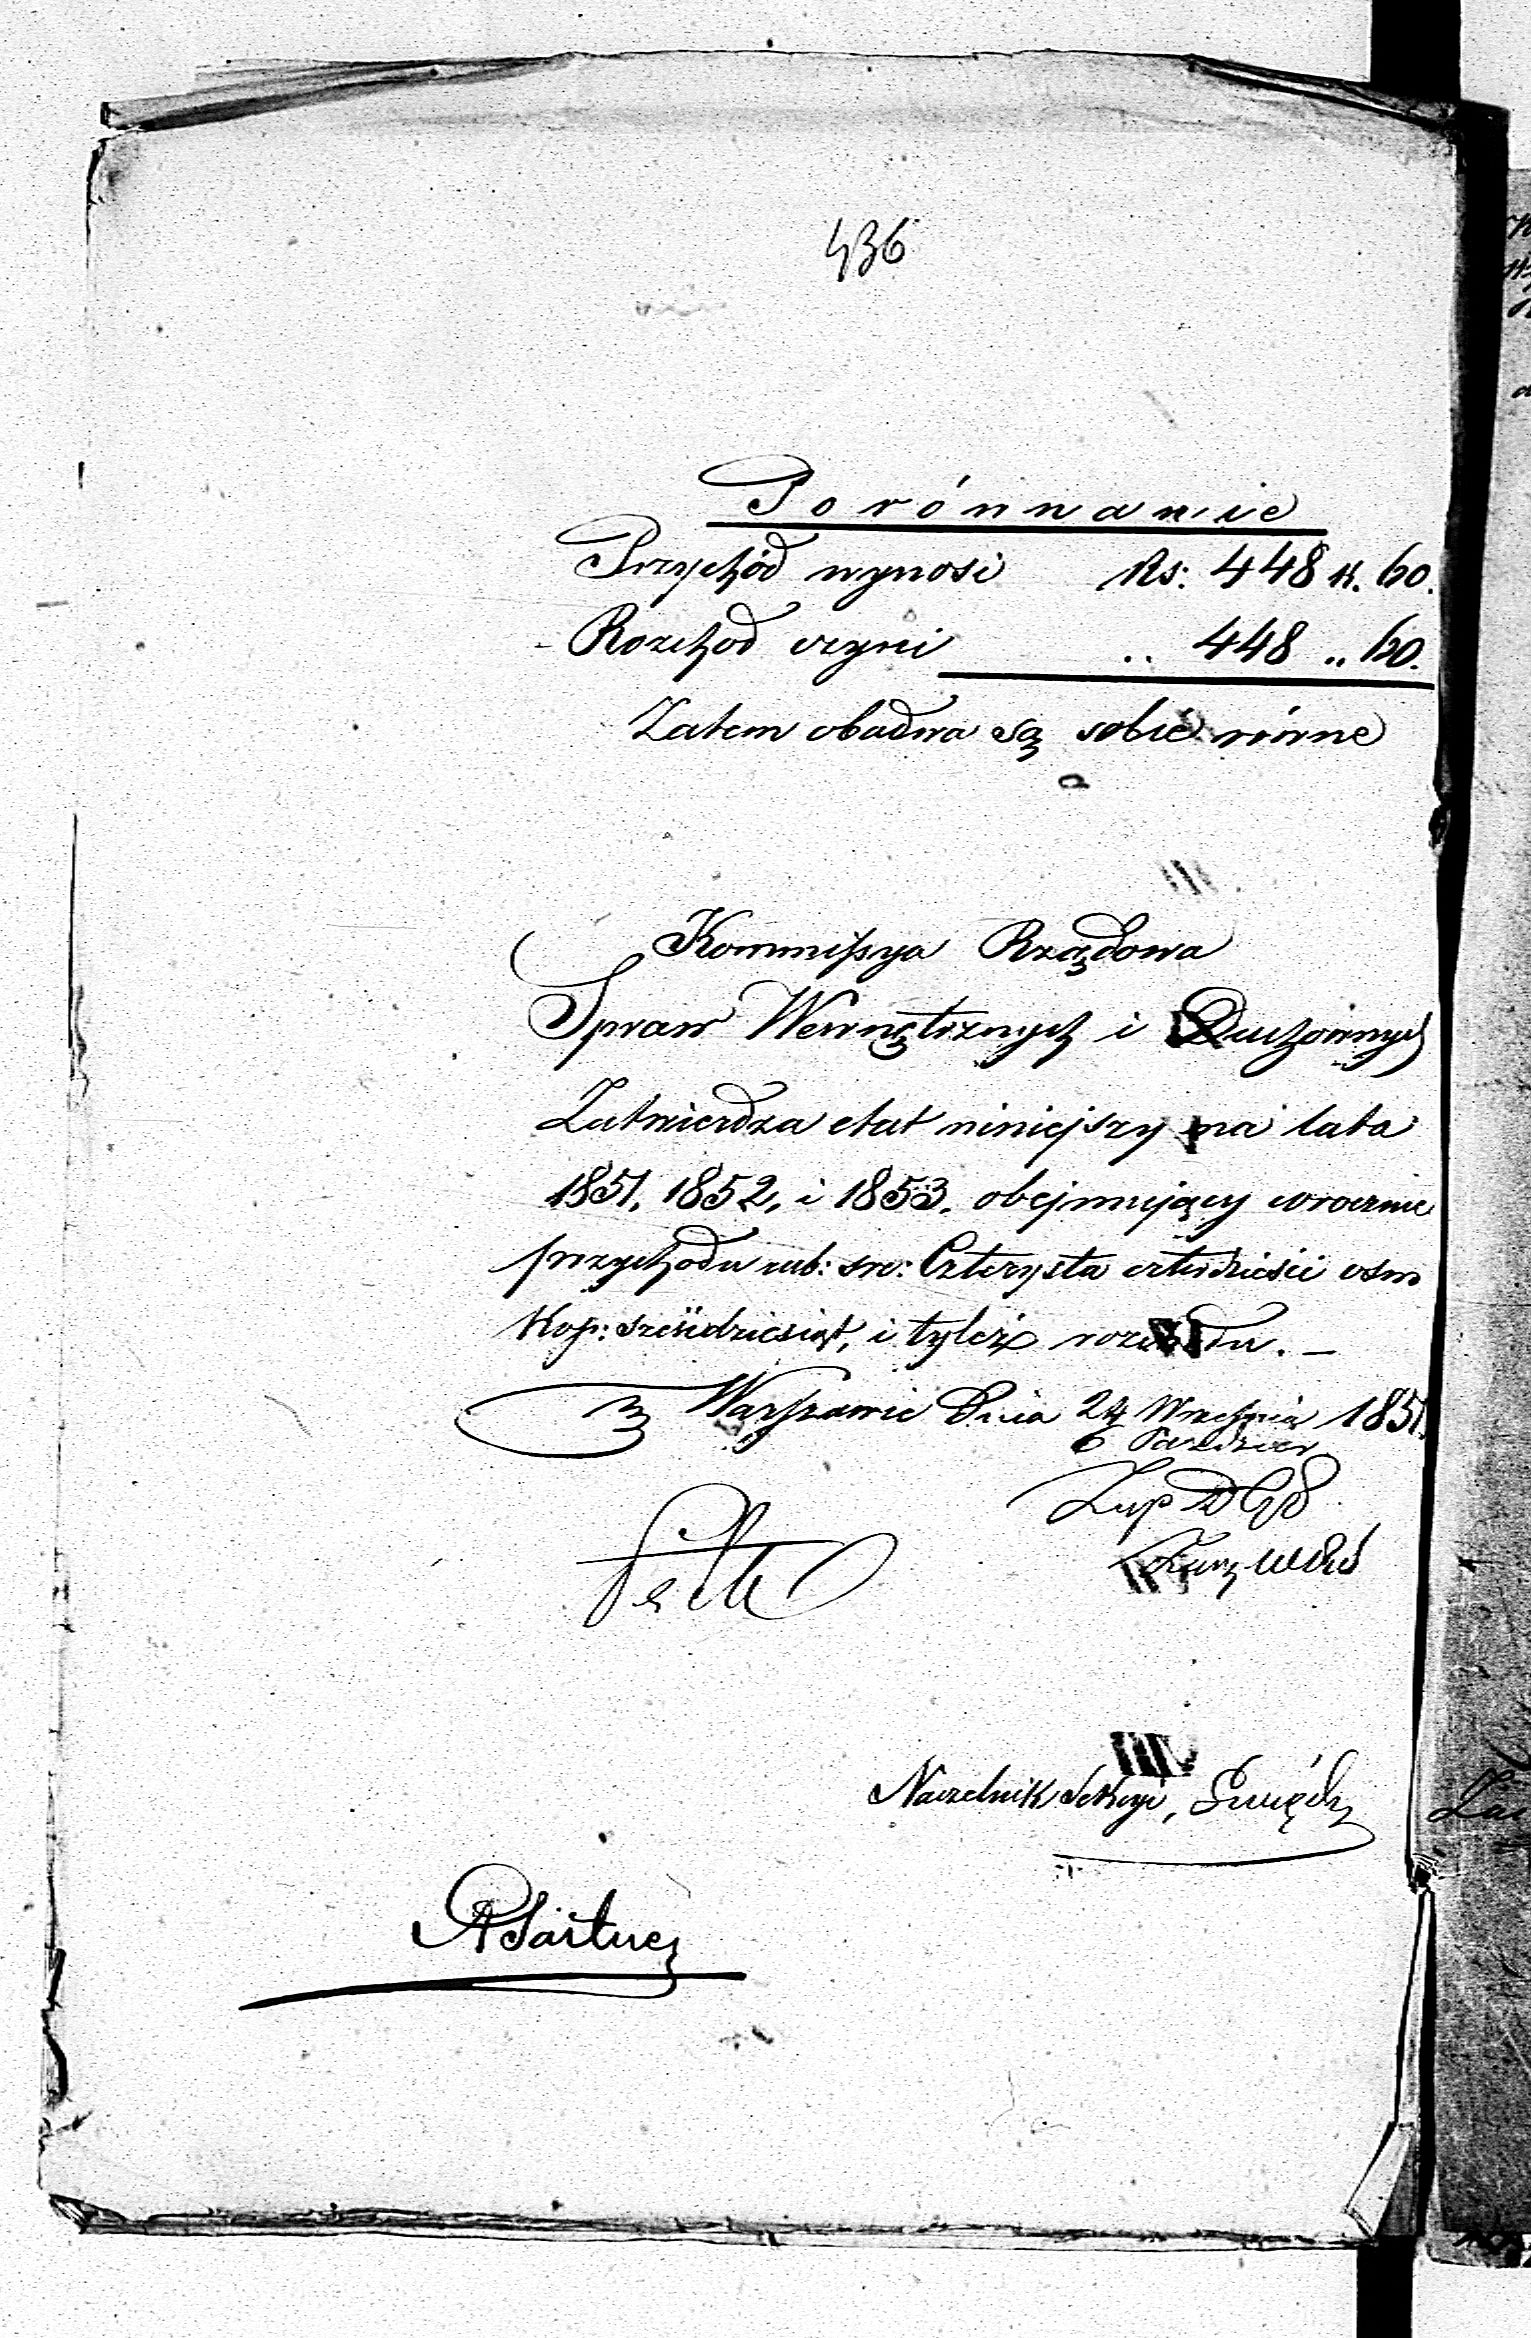 436
Porównanie
Przychód wynosi Rs: 448 k. 60.
Rozchod czyni .. 448 .. 60.
Zatem obadwa są sobie równe
Kommissya Rządowa
Spraw Wewnętrznych i Duchownych
Zatwierdza etat niniejszy na lata
1851, 1852, i 1853. obejmujący corocznie
przychodu rub: sr: Czterysta czterdzieści osm
Kop: sześcdziesiąt, i tyleż rozchodu. _
w Warszawie dnia 24 Września 1851.
6 Paździer
Naczelnik Sekcyi,